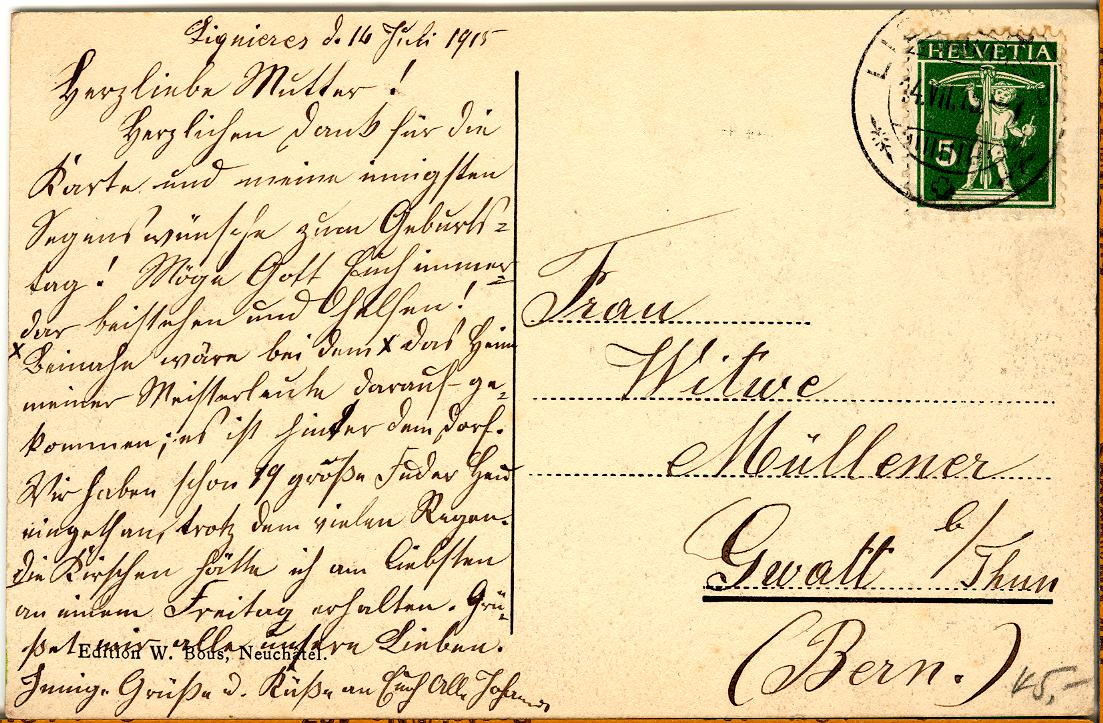 Lignieres d. 14 Juli 1915
Herzliebe Mutter!
Herzlichen Dank für die
Karte und meine innigsten
Segenswünsche zum Geburts=
tag! Möge Gott Euch immer=
dar beistehen und Ehelfen!
x Beinahe wäre bei dem x das Heim
meiner Meisterleute darauf ge=
kommen; es ist hinter dem Dorf.
Wir haben schon 19 große Fuder Heu
eingethan, trotz dem vielen Regen.
Die Kirschen hätte ich am liebsten
an einem Freitag erhalten. Grü=
ßet mir alle unsere Lieben.
Innige Grüße d. Küße an Euch Alle
Edition W. Bous, Neuchâtel.
HELVETIA
5
14.VII.15
Frau
Witwe
Müllener
Gwatt b/Thun
(Bern.)
45,-